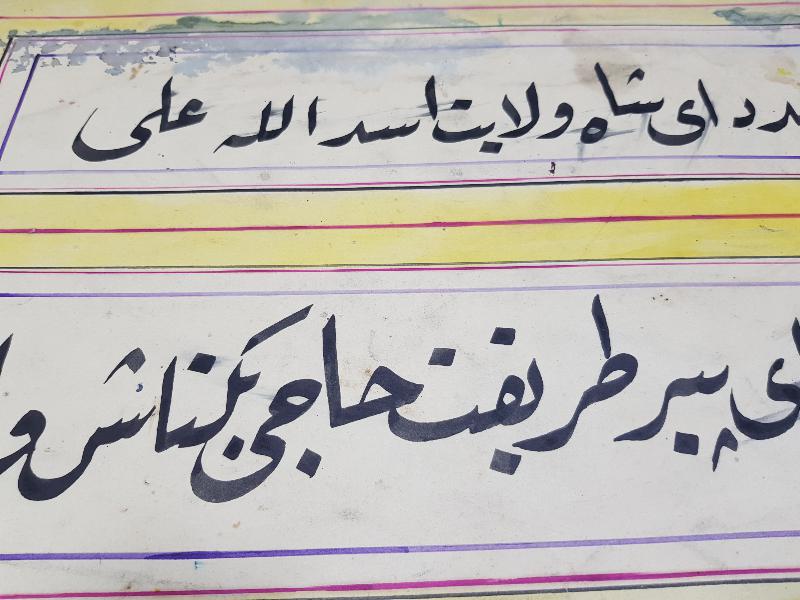 مدد ای شاه ولایت اسد الله علی
ای پیر طریقت حاجی بکتاش و